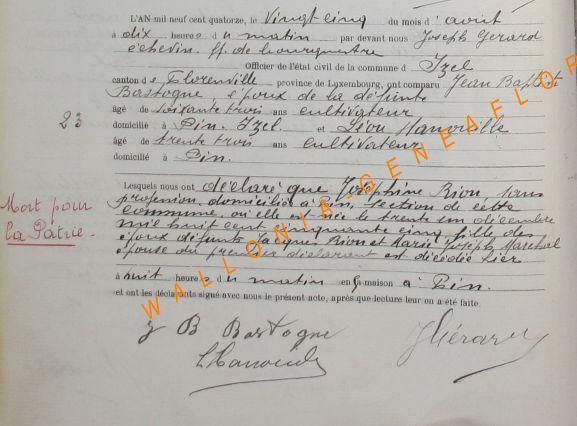 L'AN mil neuf cent quatorze, le Vingt cinq du mois d'août
à dix heures du matin par devant nous Joseph Gerard
échevin ff. de bourgmestre
Officier de l'état civil de la commune d'Izel
canton de Florenville province de Luxembourg, ont comparu Jean Baptiste
Bastogne époux de la défunte
âgé de soixante trois ans cultivateur
domicilié à Pin. Izel et Léon
âgé de trente trois ans cultivateur
domicilié à Pin.
23
Lesquels nous ont déclaré que Joséphine Rion sans
profession domiciliée à Pin, section de cette
commune, où elle est née le trente un décembre
mil huit cent cinquante cinq, fille des
époux défunts Jacques Rion et Marie Joseph Maréchal
épouse du premier déclarant est décédée hier
à huit heures du matin en sa maison à Pin.
et ont les déclarants signé avec nous le présent acte, après que lecture leur en a été faite.
Mort pour
la Patrie.
J B Bastogne
J Gérard
WALLONIA-GENEAFLOR